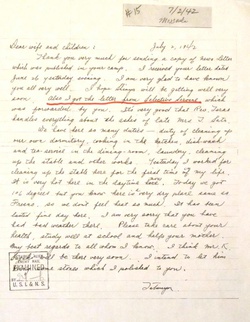 #18
7/2/42
Missoula
Dear wife and children: July 2, 1942
Thank you very much for sending a copy of news letter
which was published in your camp. I received your letter dated
June 26 yesterday evening. I am very glad to have known
you all very well. I hope things will be getting well very
soon. Also I got the letter from Selective Service which
was forwarded by you. It's very good that Rev.
handles everything about the sales of late Mrs. J. Sato.
We have here so many duties — duty of cleaning up
our own dormitory, cooking in the kitchen, dishwash
and tea-stories in the dining-room, laundry, cleaning
up the stable and other works. Yesterday I worked for
cleaning up the stable here for the first time of my life.
It is very hot here in the daytime here. Today we got
degree but you know here is very dry place, same as
Fresno. So we don't feel heat so much. It has been
dusted fine day here. I am very sorry that you have
had bad weather there. Please take care about your
health, study well at school and help your mother.
My best regards to all whom I know. I think Mr. K.
will be there very soon. I intend to let him
some stress which I polished to you.
DETAINED
ALIEN ENEMY MAIL
EXAMINED
U.S.I. & N.S.